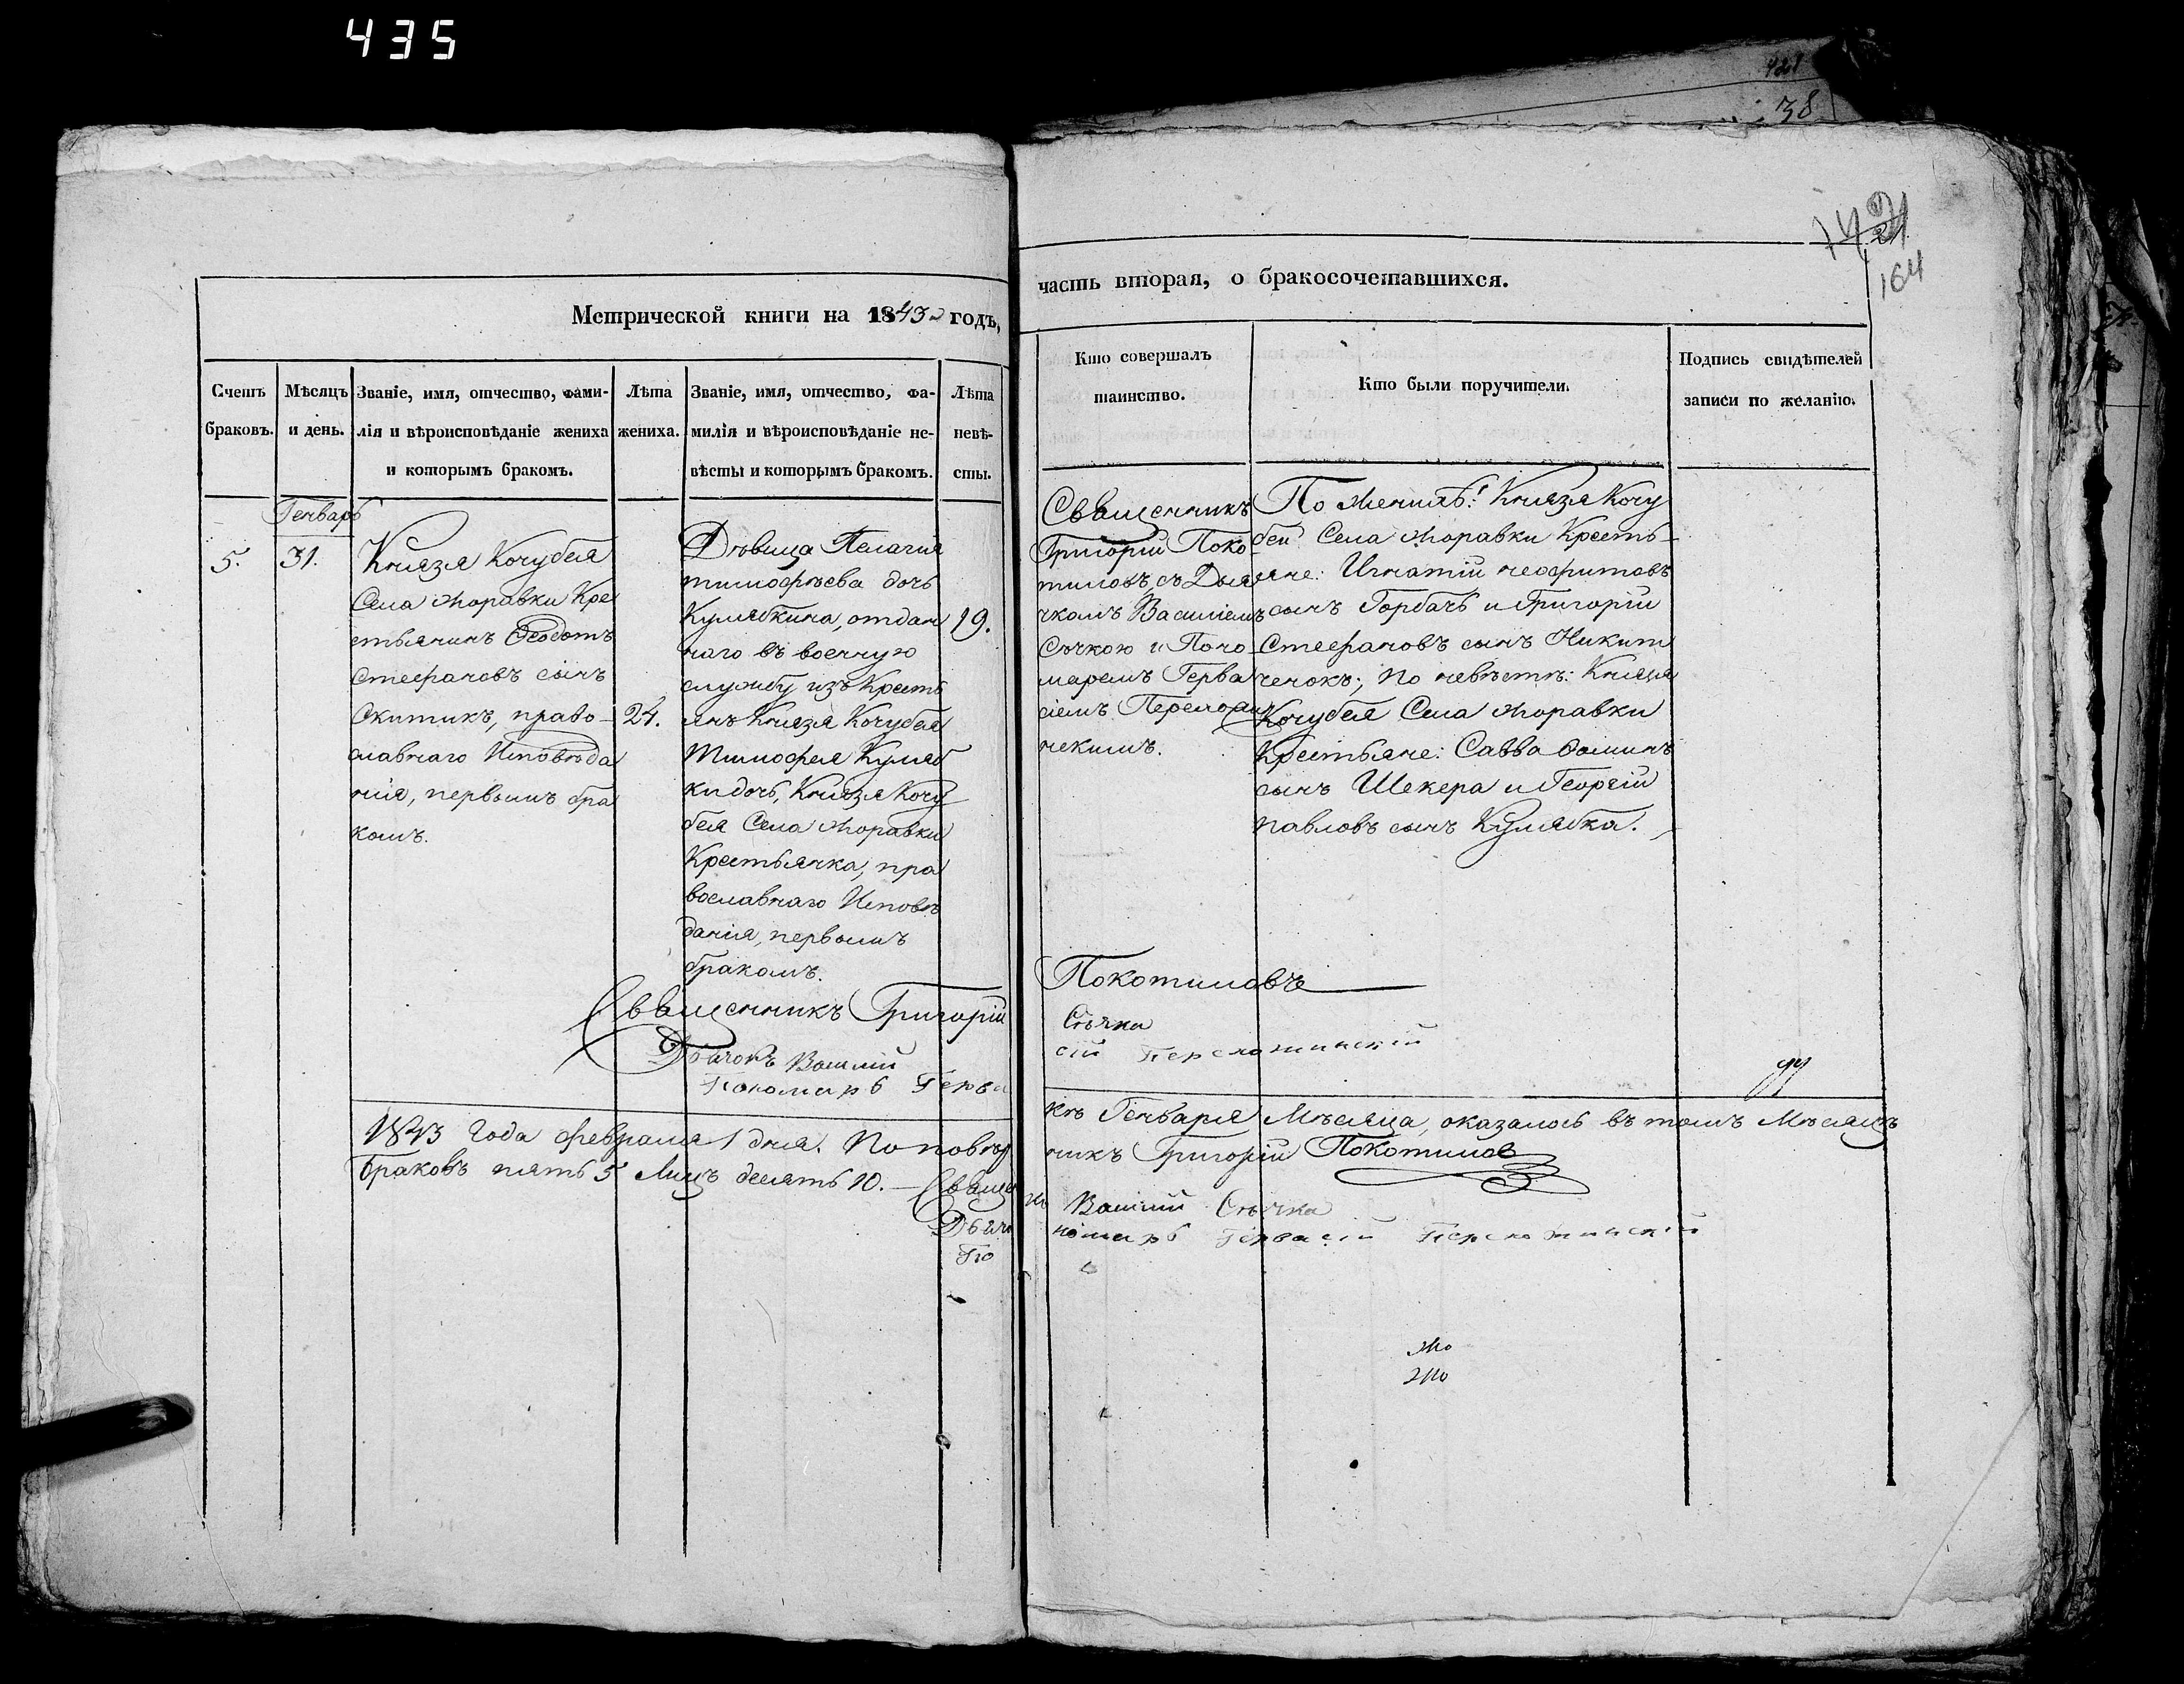 435
421
38
164
Метрической книги на 1843 годъ,
часть вторая, о бракосочетавшихся.
Счетъ браковъ.
Мѣсяцъ и день.
Званіе, имя, отчество, фами-
лія и вѣроисповѣданіе жениха
и которымъ бракомъ.
Лѣта
жениха.
Званіе, имя, отчество, фа-
милія и вѣроисповѣданіе не-
вѣсты и которымъ бракомъ.
Лѣта
невѣ-
сты.
Кто совершалъ
таинство.
Кто были поручители.
Подпись свидѣтелей
записи по желанію.
Генварь
5.
31.
Князя Кочубея
Села Моравки Кре
стьянинъ Ѳеодотъ
Стефановъ сынъ
Скитикъ, право-
славнаго Исповѣда
нія, первымъ бра
комъ.
24.
Дѣвица Пелагия
тимофѣева дочь
Кулябкина, отдан
наго въ военную
службу изъ Кресть
янъ Князя Кочубея
Тимофея Куляб
ки дочь, Князя Кочу
бея Села Моравки
Крестьянка, пра
вославнаго Исповѣ
данія, первымъ
бракомъ.
19.
Священникъ
Григорій Поко
тиловъ, съ Дья
чкомъ Василіемъ
Сѣчкою и Поно
маремъ Герва
сіемъ Переложин
чекимъ.
По Женихѣ: Князя Кочу
беи Села Моравки Кресть-
яне: Игнатій неофитовъ
сынъ Горбачь и Григорій
Стефановъ сынъ Никит
ченокъ; По невѣстѣ: Князя
Кочубея Села Моравки
Крестьяне: Савва Ѳоминъ
сынъ Шекера и Георгій
Павловъ сынъ Кулябка.
Священникъ Григорій Покотиловъ
Дьячокъ Василій Сѣчка
Пономарь Герва сій Переложинскій
1843 Года февраля 1 дня. По повѣр кѣ Генваря Мѣсяца, оказалось въ томъ Мѣсяцѣ
Браковъ пять 5 Лицъ десять 10. — Священ никъ Григорій Покотиловъ
Дьячо къ Василій Сѣчка
По номарь Гервасій Переложинскій